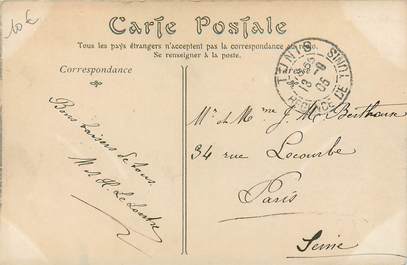 10€
Carte Postale
Tous les pays étrangers n'acceptent pas la correspondance au
Se renseigner à la poste.
Correspondance
Adresse
TUNIS
TUNIS
RÉGENCE DE
13 -6
05
Bons baisers de tous.
M & H. Le Lontre
Mr et Mme J. M. Berthoux
34 rue Lecourbe
Paris
Seine